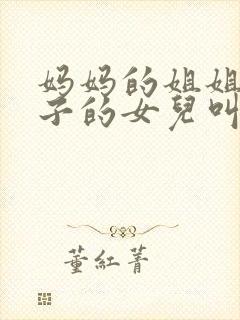 妈妈的姐姐
子的女兒叫
董紅菁